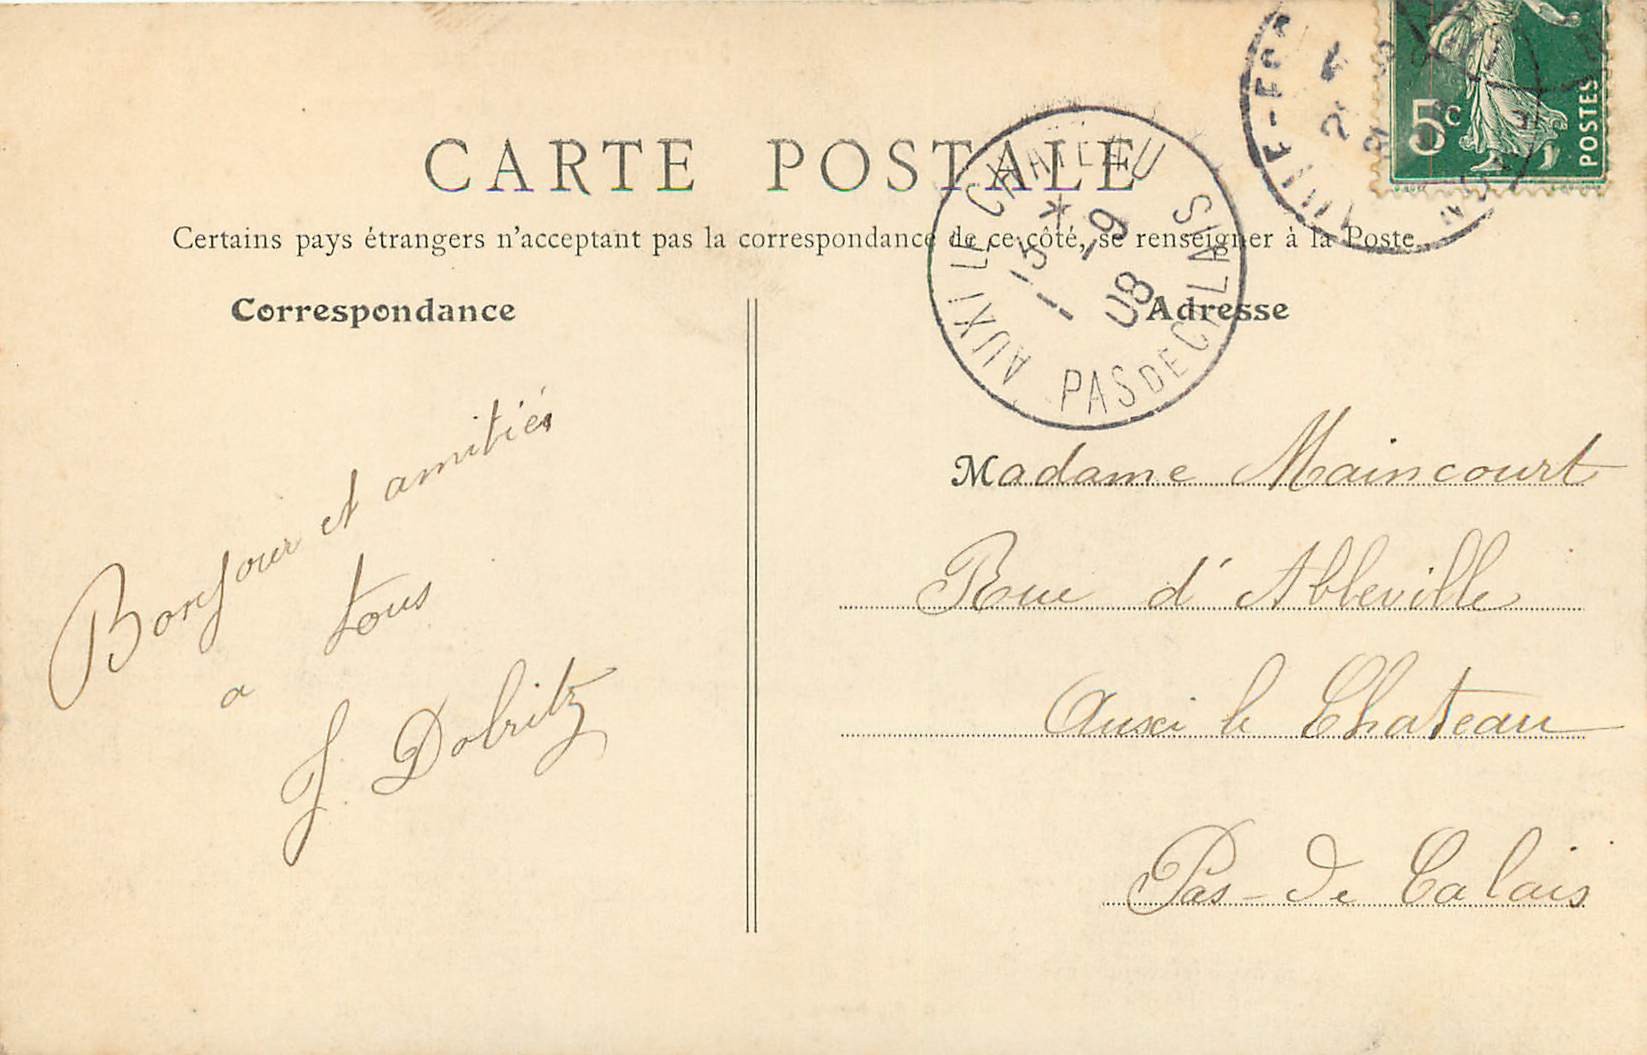 CARTE POSTALE
Certains pays étrangers n'acceptant pas la correspondance de ce côté, se renseigner à la Poste
Correspondance
Bonjour et amitiés
a tous
J. Dobritz
Adresse
Madame Maincourt
Rue d'Abbeville
Auxi le Chateau
Pas-de Calais
AUXI LE CHATEAU
15 * -9
08
PAS DE CALAIS
5c
POSTES